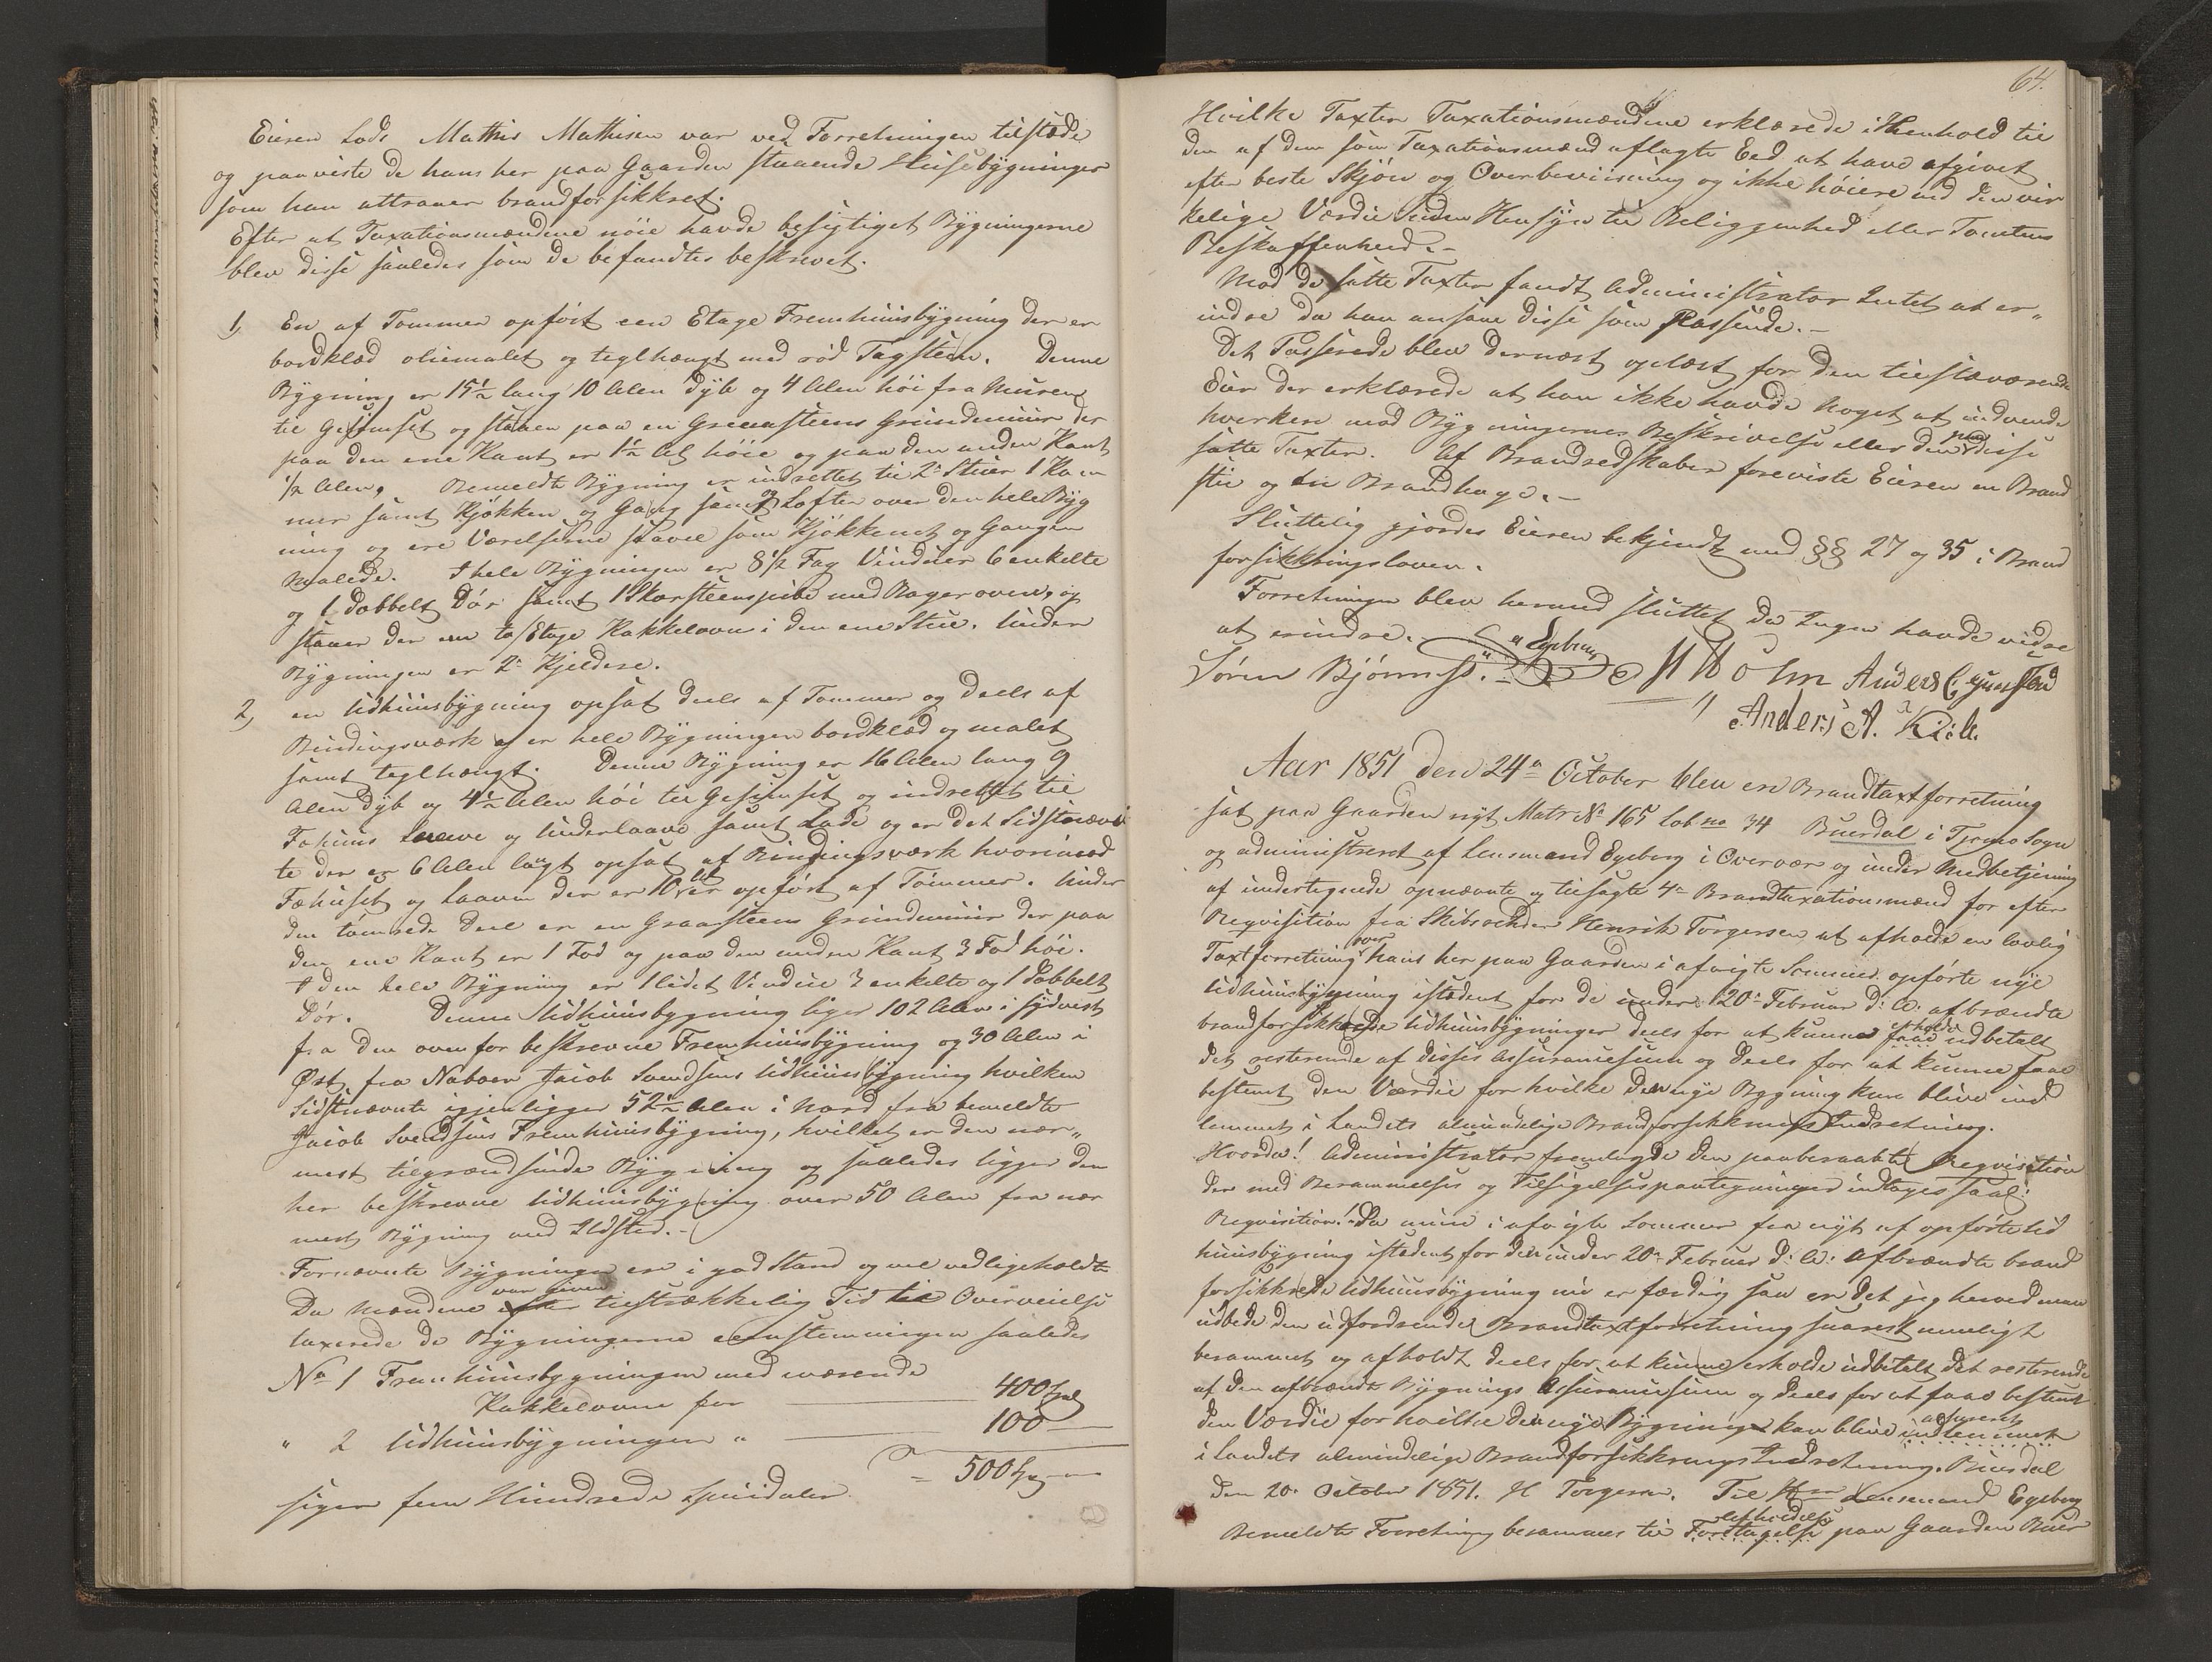 Eieren Lods Mathis Mathisen var ved Forretningen tilstæde
og paaviste de hans her paa Gaarden staaende Huusebygninger
som han attraaer brandforsikkret.
Efter at Taxationsmændene nöie havde besigtiget Bygningerne
blev disse saaledes som de befandtes beskrevet.
1, En af Tømmer opfört een Etage Fremhuusbygning der er
bordklæd oliemalet og teglhængt med röd Tagsteen. Denne
Bygning er 15½ lang 10 Alen dyb og 4 Alen höi fra Muren
til Gesimset og staaer paa en Graasteens Grundmuur der
paa den ene Kant er 1½ Al höie og paa den anden Kant
½ Alen. Bemeldte Bygning er indrettet til 2 Stuer 1 Kam
mer samt Kjökken og Gang samt Lofter over den hele Byg
ning og ere Værelserne saavel som Kjökkenet og Gangen
malede. I hele Bygningen er 8½ Fag Vinduer 6 enkelte
og 1 dobbelt Dör samt 1 Skorsteenspibe med Bagerovn, og
staaer der en to Etage Kakkelovn i den ene Stue. Under
Bygningen er 2 Kjeldere.
2, en Udhuusbygning opsat deels af Tømmer og deels af
Bindingsværk og er hele Bygningen bordklæd og malet
samt teglhængt. Denne Bygning er 16 Alen lang 9
Alen dyb og 4½ Alen höi til Gesimset og indrettet til
Fæhuus Laave og Underlaave samt Lade og er det Sidstnævn
te der er 6 Alen langt opsat af Bindingsværk hvorimod
Fæhuset og Laaven der er 10 Al er opført af Tömmer. Under
den tömrede Deel er en Graasteens Grundmuur der paa
den ene Kant er 1 Fod og paa den anden Kant 3 Fod höi.
I den hele Bygning er 1 lidet Vindue 3 enkelte og 1 dobbelt
Dör. Denne Udhuusbygning ligger 102 Alen i sydvest
fra den ovenfor beskrevne Fremhuusbygning og 30 Alen i
Öst fra Naboen Jacob Svendsens Udhuusbygning hvilken
Sidstnævnte igjen ligger 52½ Alen i Nord fra bemeldte
Jacob Svendsens Fremhuusbygning, hvilket er den nær„
mest tilgrændsende Bygning og saaledes ligger den
her beskrevne Udhuusbygning over 50 Alen fra nær
mest Bygning med Ildsted.-
Fornævnte Bygninger er i god Stand og vel vedligeholdt
var given
Da Mændene efter tilstrækkelig Tid til Overveielse
taxerede de Bygningerne eenstemmingen saaledes
No 1 Fremhuusbygningen med værende
Kakkelovne for 400 Spd
" 2 Udhuusbygningen " 100 —
= 500 Spd
siger fem Hundrede Speciedaler
64.
Hvilke Taxter Taxationsmændene erklærede i Henhold til
den af dem som Taxationsmænd aflagte Eed at have afgivet
efter beste Skjön og Overbeviisning og ikke höiere end den vir
kelige Værdie uden Hensyn til Beliggenhed eller Tomtens
Beskaffenhed.-
Mod de satte Taxter fandt Administrator Intet at er„
indre da han ansaae disse som Passende.-
Det Passerede blev dernæst oplæst for den tilstæværende
Eier der erklærede at han ikke havde Noget at indvende
hverken mod Bygningernes Beskrivelse eller den paa disse
satte Taxter. Af Brandredskaber foreviste Eieren en Brand
stie og en Brandhage.-
Sluttelig gjordes Eieren bekjendt med §§ 27 og 35 i Brand
forsikkringsloven.
Forretningen blev hermed sluttet da Ingen havde videre
at erindre. Egeberg
Sören Björness. Holm Anders
Anders A.
Aar 1851 den 24de October blev en Brandtaxtforretning
sat paa Gaarden nyt Matr No 165 Lob no 34 Buerdal i Tjømø Sogn
og administreret af Lensmand Egeberg i Overvær og under Medbetjening
af undertegnede opnævnte og tilsagte 4 Brandtaxationsmænd for efter
Reqvisition fra Skibsrheder Henrik Torgersen at afholde en lovlig
Taxtforretning over hans her paa Gaarden i afvigte Sommer opförte nye
Udhuusbygning istedent for de under 20 Februar d: A: afbrændte
brandforsikkrede Udhuusbygninger deels for at kunne erholde faae udbetalt
det resterende af disses Assurancesum og deels for at kunne faae
bestemt den Værdie for hvilke den nye Bygning kan blive ind
lemmet i Landets almindelige Brandforsikkrings Indretning.
Hvorda! Administrator fremlagde den paaberaabte Reqvisition
der med Berammelses og Tilsigelsespaategninger indtages saal:
Reqvisition! Da min i afvigte Sommer fra nyt af opförte Ud
huusbygning istedent for den under 20 Februar d: A: afbrændte brand
forsikkrede Udhuusbygning nu er færdig saa er det jeg herved maa
udbede den udfordrende Brandtaxtforretning snarest mueligt
berammet og afholdt deels for at kunne erholde udbetalt det resterende
af den afbrændte Bygnings Assurancesum og deels for at faae bestemt
den Værdie for hvilke den nye Bygning kan blive assureret indlemmet
i Landets almindelige Brandforsikkrings Indretning. Buerdal
den 20 October 1851. H Torgersen. Til Hrr Lensmand Egeberg
Bemeldte Forretning berammes til Afholdelse Foretagelse paa Gaarden Buer